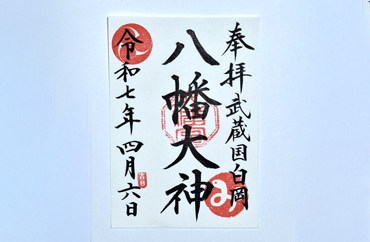 奉拝武蔵国白岡
八幡大神
令和七年四月六日